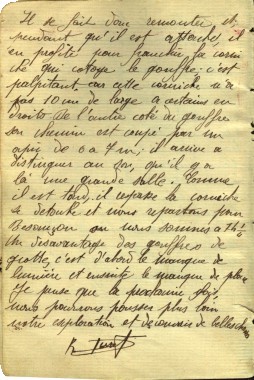 Il se fait donc remonter, et
pendant qu'il est attaché, il
en profite pour franchir la corni
che qui cotoye le gouffre; c'est
palpitant, car cette corniche n'a
pas 10 cm de large à certains en
droits. De l'autre coté du gouffre
son chemin est coupé par un
à pic de 6 à 7 m; il arrive à
distinguer au son, qu'il y a
là une grande salle. Comme
il est tard, il repasse la corniche
se détache et nous repartons pour
Besançon où nous sommes à
Un désavantage des gouffres
grottes, c'est d'abord le manque de
lumière et ensuite le manque de
Je pense que la prochaine
nous pourrons pousser plus loin
notre exploration et découvrir de belles